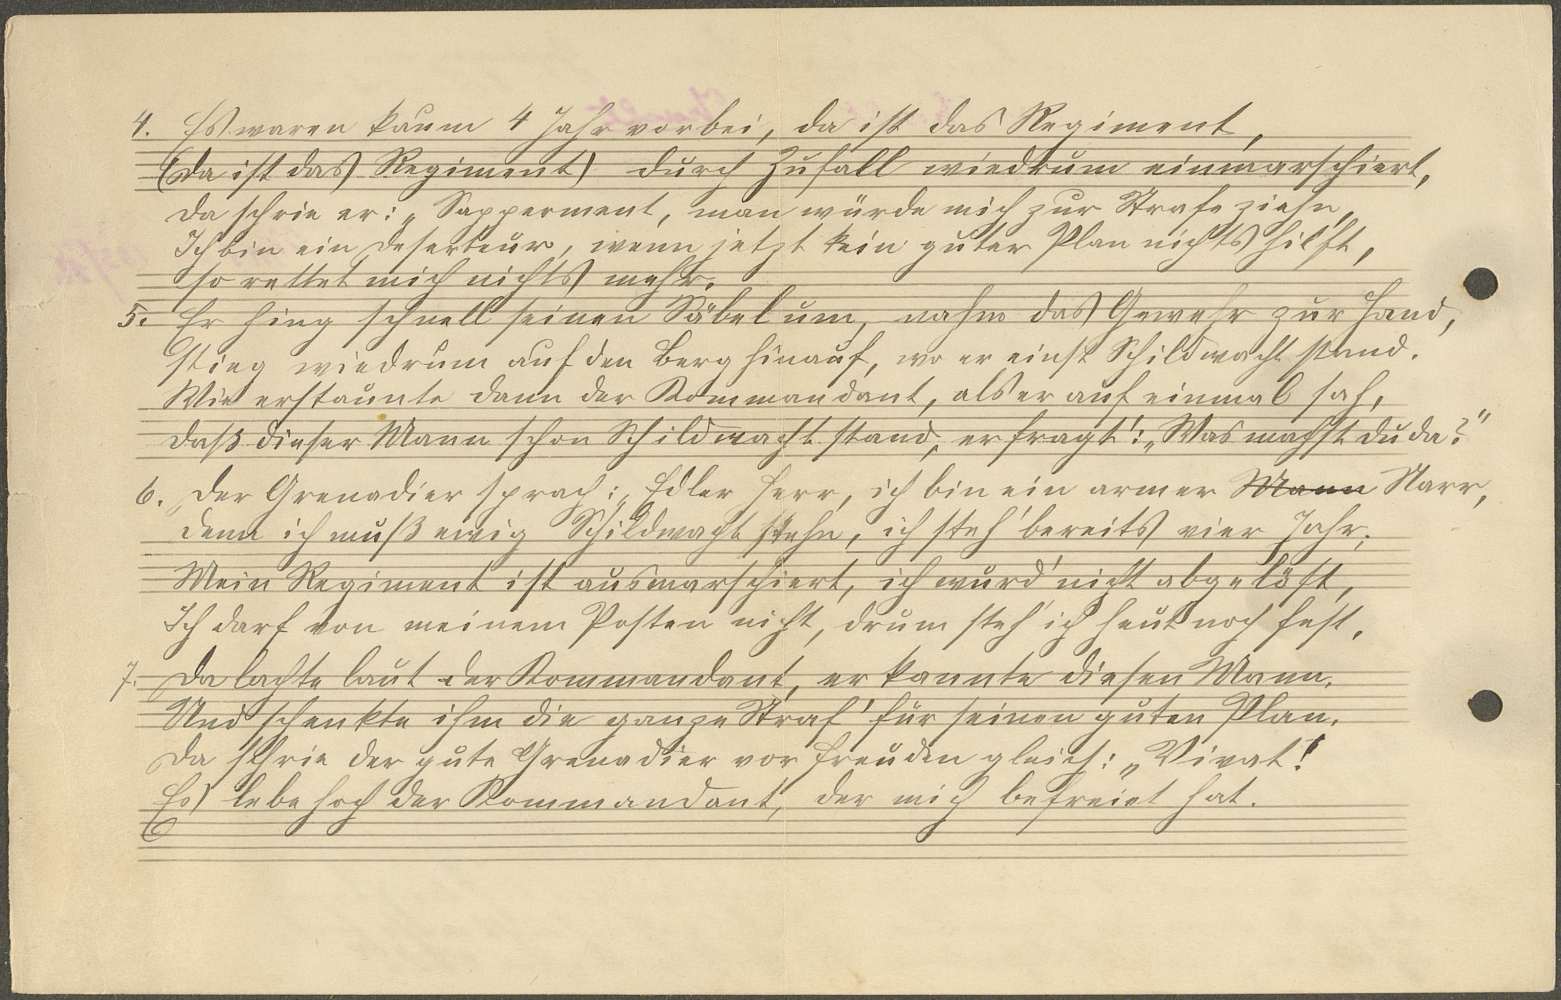 4. Es waren kaum 4 Jahr vorbei, da ist das Regiment,
(da ist das Regiment) durch Zufall wiedrum einmarschiert,
da schrie er: „Sapperment, man würde mich zur Strafe ziehn,
Ich bin ein Deserteur, wenn jetzt kein guter Plan nichts hilft,
so rettet mich nichts mehr.
5. Er hing schnell seinen Säbel um, nahm das Gewehr zur Hand,
stieg wiedrum auf den Berg hinauf, wo er einst Schildwacht stand.
Wie erstaunte dann der Kommandant, als er auf einmal sah,
daß dieser Mann schon Schildwacht stand, er fragt': „Was machst du da?"
6. Der Grenadier sprach: „Edler Herr, ich bin ein armer Mann Narr,
denn ich muß ewig Schildwacht stehn, ich steh' bereits vier Jahr;
Mein Regiment ist ausmarschiert, ich wurd' nicht abgelöst,
Ich darf von meinem Posten nicht, drum steh' ich heut noch fest.
7. Da lachte laut der Kommandant, er kannte diesen Mann,
Und schenkte ihm die ganze Straf' für seinen guten Plan.
Da schrie der gute Grenadier vor Freuden gleich: „Vivat!
Es lebe hoch der Kommandant, der mich befreiet hat.